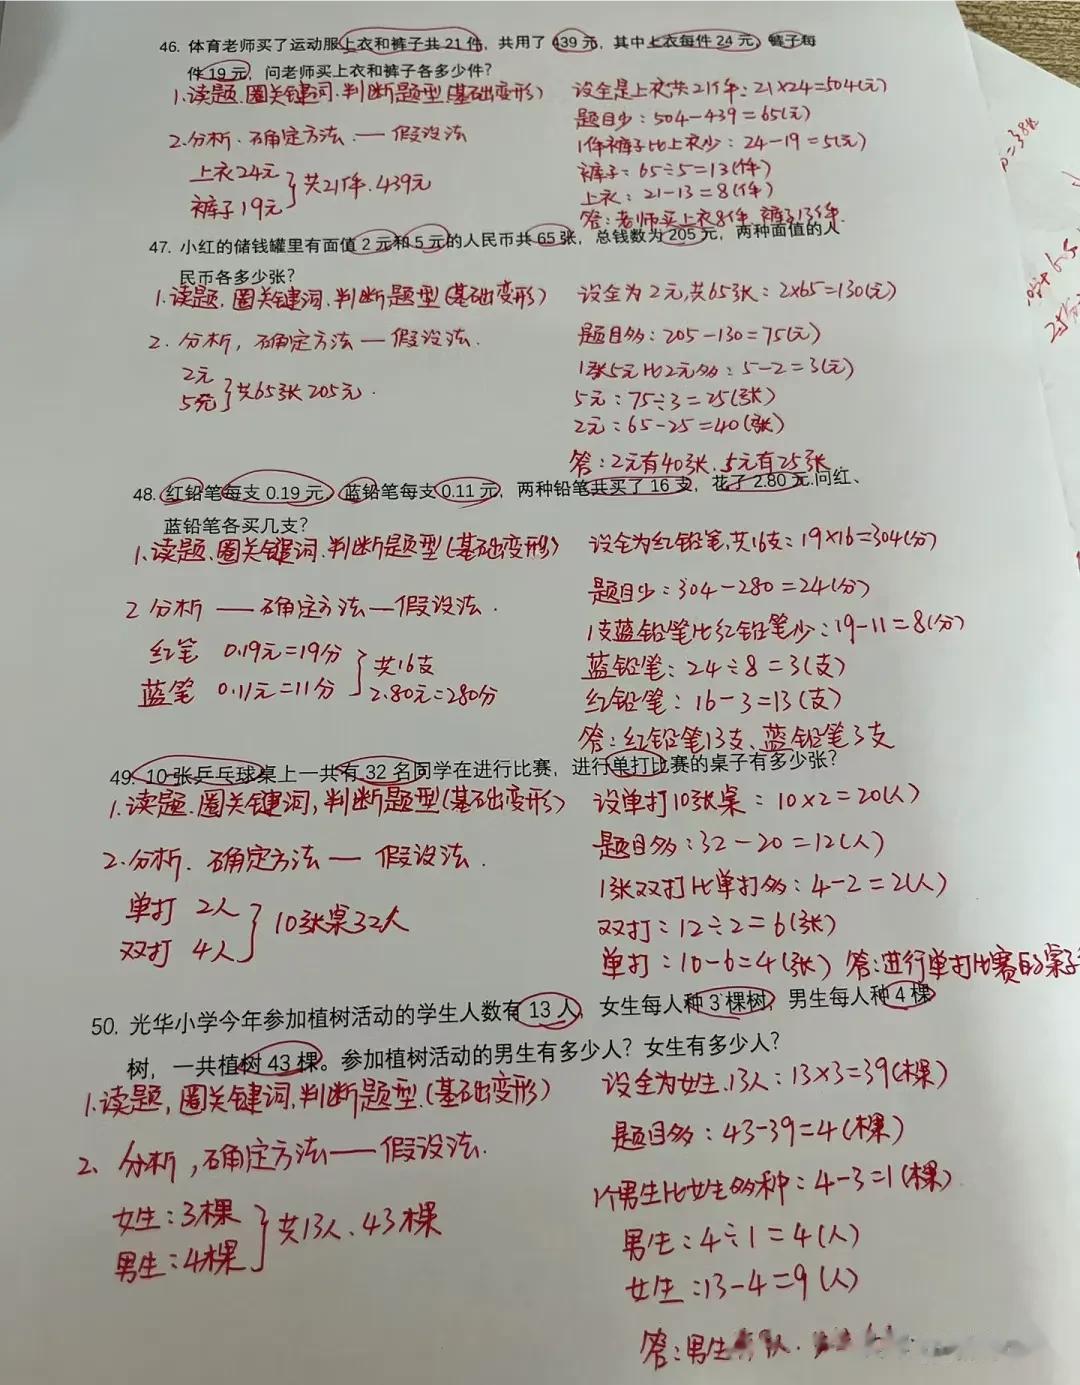 46. 体育老师买了运动服上衣和裤子共 21 件，共用了 439 元，其中上衣每件 24 元，裤子每
件 19 元，问老师买上衣和裤子各多少件？
1.读题.圈关键词.判断题型(基础变形)
设全是上衣共21件：21×24=504(元)
题目少：504-439=65(元)
2.分析.确定方法——假设法
1件裤子比上衣少：24-19=5(元)
上衣24元
裤子19元
共21件.439元
裤子：65÷5=13(件)
上衣：21-13=8(件)
答：老师买上衣8件.裤子13件.
47. 小红的储钱罐里有面值 2 元和 5 元的人民币共 65 张，总钱数为 205 元，两种面值的人
民币各多少张？
1.读题.圈关键词.判断题型(基础变形)
设全为2元,共65张：2×65=130(元)
2.分析，确定方法—假设法.
题目多：205-130=75(元)
1张5元比2元多：5-2=3(元)
2元
5元
共65张205元.
5元：75÷3=25(张)
2元：65-25=40(张)
答：2元有40张.5元有25张
48. 红铅笔每支 0.19 元，蓝铅笔每支 0.11 元，两种铅笔共买了 16 支，花了 2.80 元.问红、
蓝铅笔各买几支？
1.读题.圈关键词.判断题型(基础变形)
设全为红铅笔,共16支：19×16=304(分)
题目少：304-280=24(分)
2 分析——确定方法—假设法.
1支蓝铅笔比红铅笔少：19-11=8(分)
红笔 0.19元=19分
蓝笔 0.11元=11分
共16支
2.80元=280分
蓝铅笔：24÷8=3(支)
红铅笔：16-3=13(支)
答：红铅笔13支、蓝铅笔3支
49. 10 张乒乓球桌上一共有 32 名同学在进行比赛，进行单打比赛的桌子有多少张？
1.读题.圈关键词,判断题型(基础变形)
设单打10张桌：10×2=20(人)
题目多：32-20=12(人)
2.分析.确定方法—假设法.
1张双打比单打多：4-2=2(人)
单打 2人
双打 4人
10张桌32人
双打：12÷2=6(张)
单打：10-6=4(张) 答：进行单打比赛的桌子
50. 光华小学今年参加植树活动的学生人数有 13 人，女生每人种 3 棵树，男生每人种 4 棵
树，一共植树 43 棵。参加植树活动的男生有多少人？女生有多少人？
1.读题,圈关键词.判断题型.(基础变形)
设全为女生.13人：13×3=39(棵)
题目多：43-39=4(棵)
2、分析,确定方法——假设法.
1个男生比女生多种：4-3=1(棵)
女生：3棵
男生：4棵
共13人、43棵
男生：4÷1=4(人)
女生：13-4=9(人)
答：男生